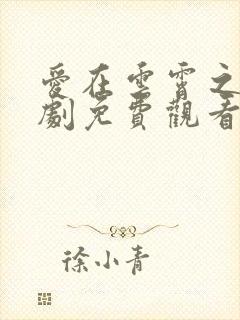 愛在雲霄之
劇免費觀看
徐小青